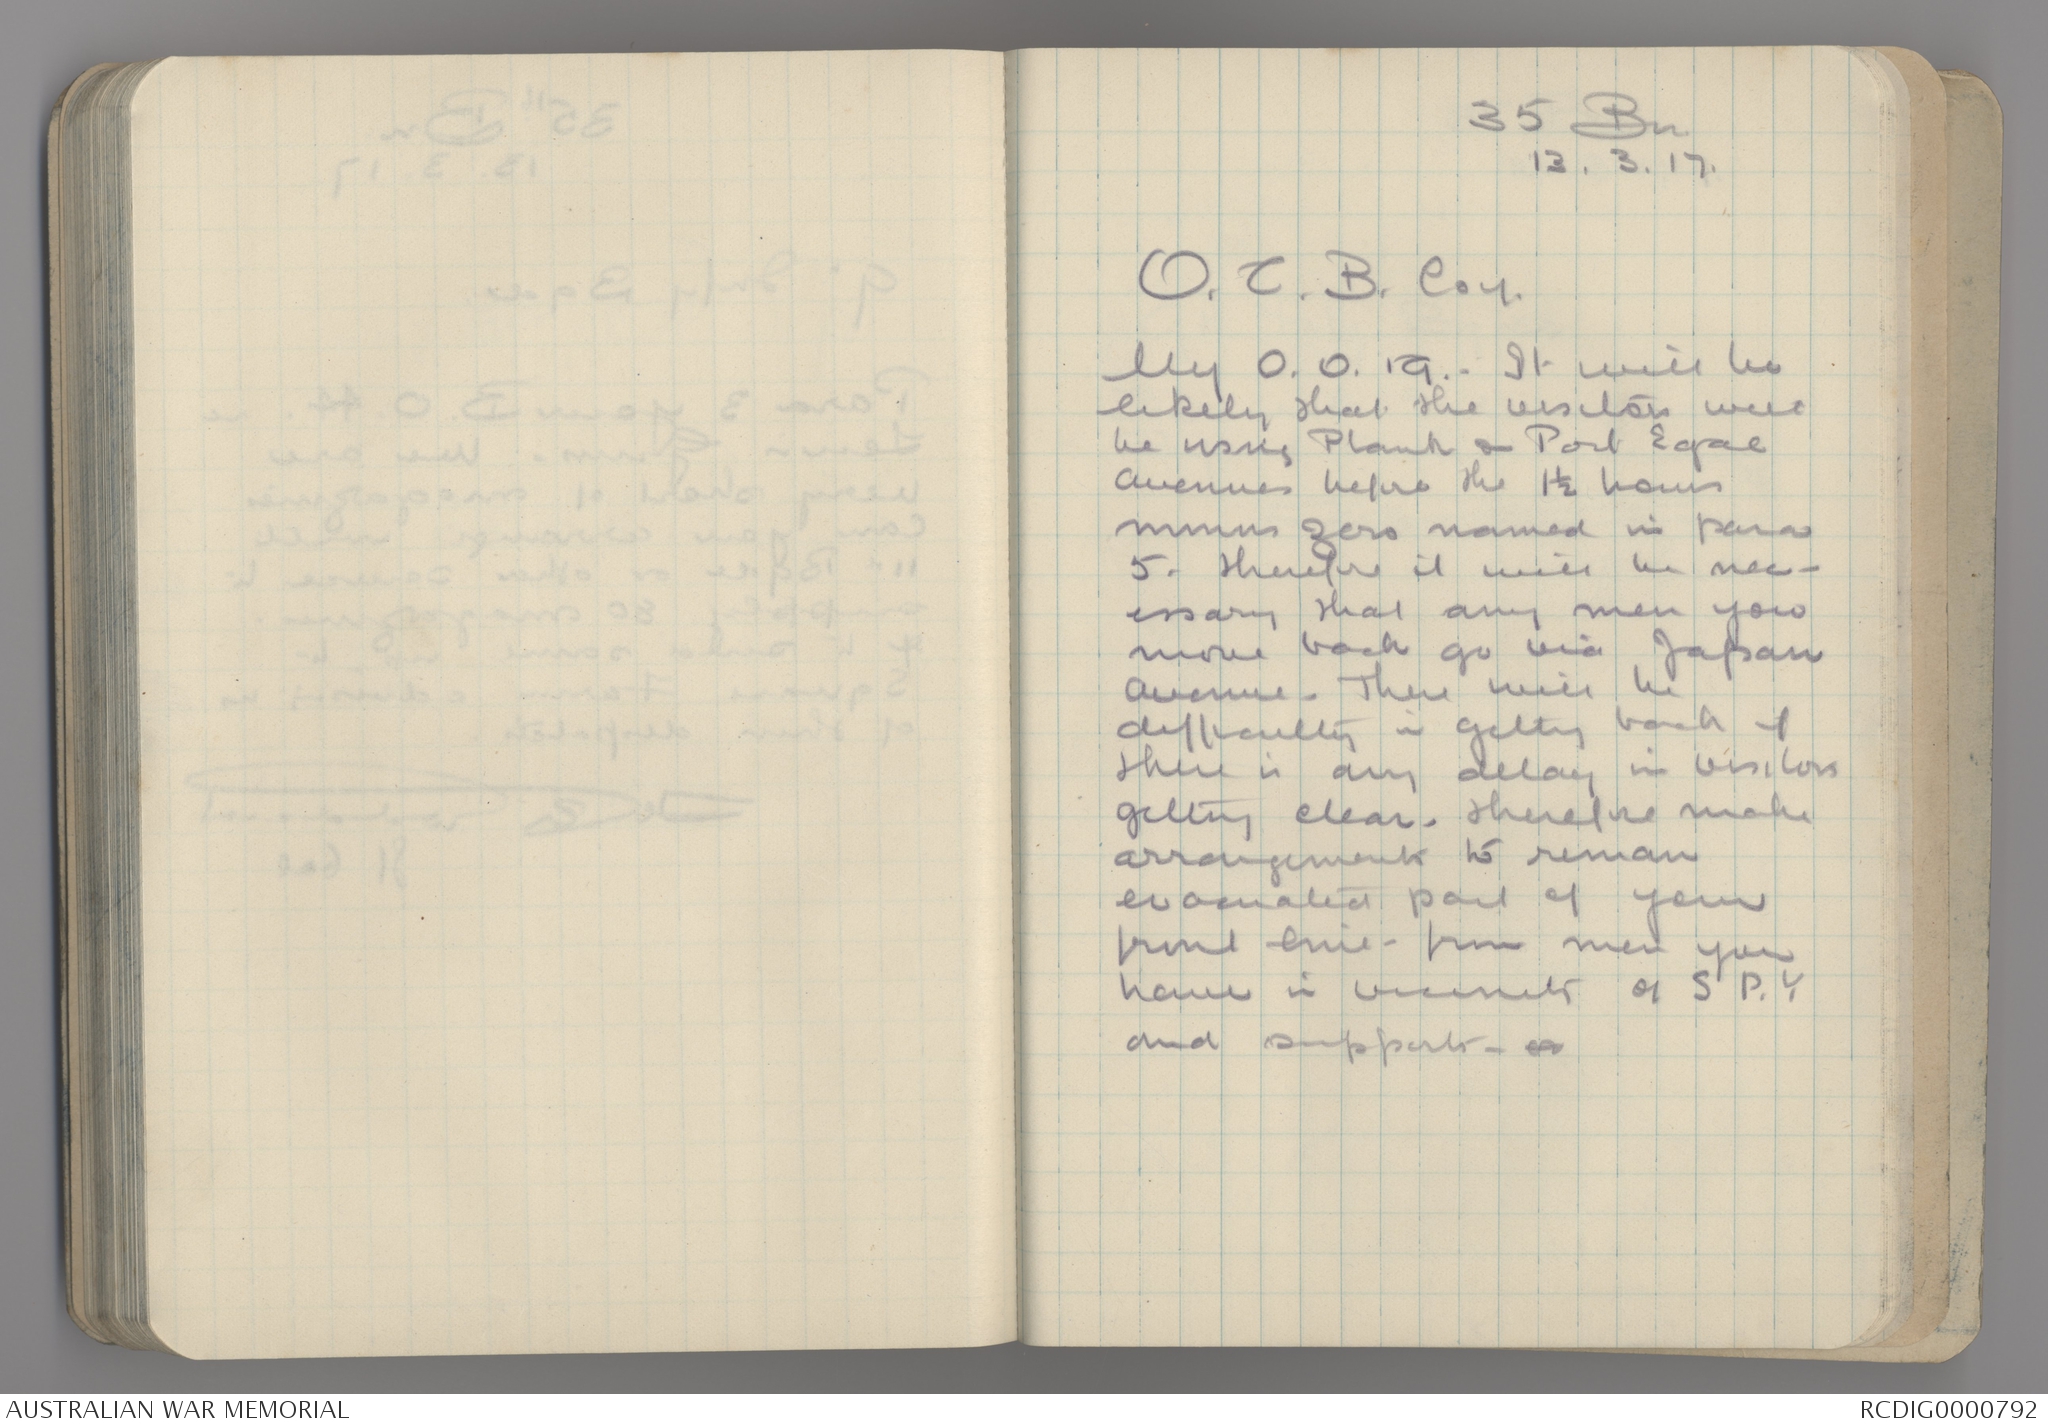 35 Bn
13. 3. 17.
O. C. B. Coy.
My O. O. 19. - It will be
likely that the visitors will
be using Plank & Port Egal
Avenues before the 1½ hours
minus zero named in para
5. therefore it will be nec-
essary that any men you
move back go via Japan
Avenue. There will be
difficulty in getting back if
there is any delay in visitors
getting clear. therefore make
arrangements to reman
evacuated part of your
front line - from men you
have in vicinity of S P. Y
and supports -
AUSTRALIAN WAR MEMORIAL
RCDIG0000792